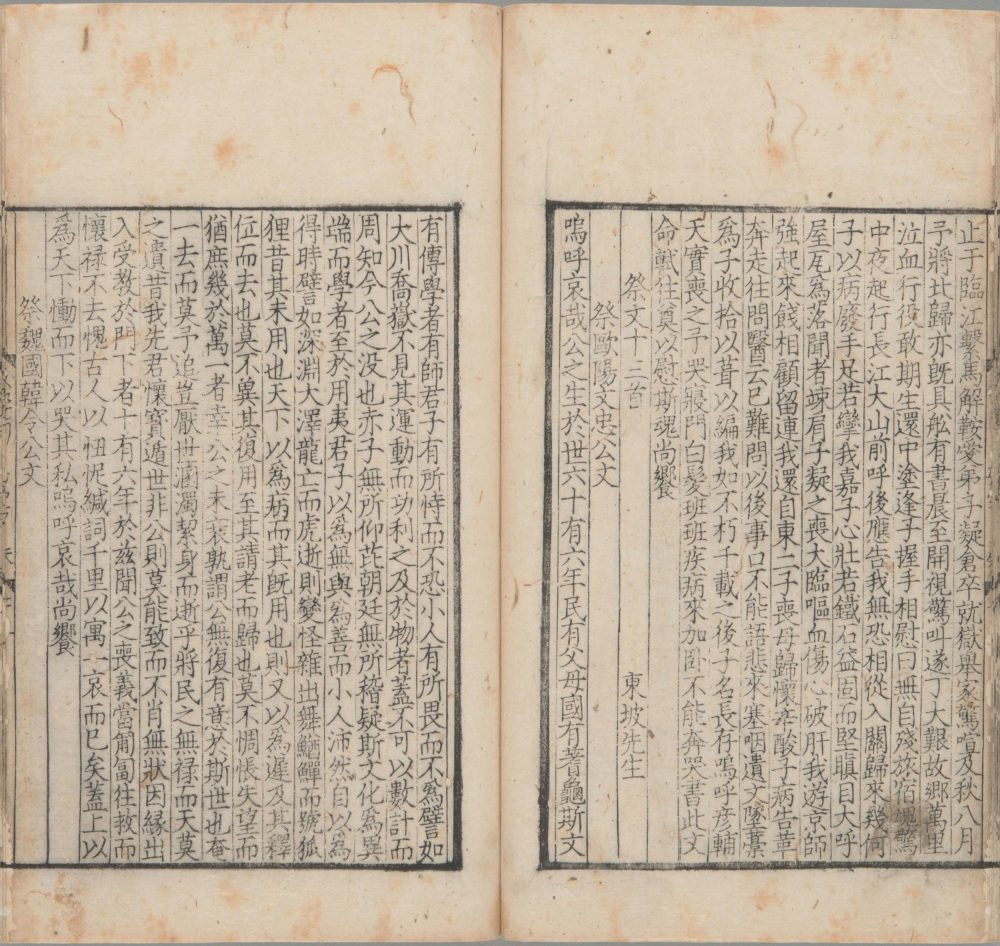 止于臨江繫馬解鞍愛弟子凝倉卒就獄舉家驚喧及秋八月
予將北歸亦既具舩有書晨至開視驚叫遂丁大艱故鄉萬里
泣血行役敢期生還中塗逢子握手相慰曰無自殘旅宿魂驚
中夜起行長江大山前呼後應告我無恐相從入關歸來幾何
子以病廢手足若攣我嘉子心壯若鐵石益固而堅瞋目大呼
屋瓦為落聞者竦肩子凝之喪大臨嘔血傷心破肝我游京師
強起來餞相顧留連我還自東二子喪母歸懷辛酸子病告革
奔走往問醫云已難問以後事口不能語悲來塞咽遺文墜藁
為子收拾以葺以編我如不朽千載之後子名長存嗚呼彦輔
天實喪之予哭寢門白髮班班疾病來加卧不能奔哭書此文
命軾往奠以慰斯魂尚饗
祭文十三首
東坡先生
祭歐陽文忠公文
嗚呼哀哉公之生於世六十有六年民有父母國有蓍龜斯文
有傳學者有師君子有所恃而不恐小人有所畏而不為譬如
大川喬嶽不見其運動而功利之及於物者蓋不可以數計而
周知今公之没也赤子無所仰芘朝廷無所稽疑斯文化為異
端而學者至於用夷君子以為無與為善而小人沛然自以為
得時譬如深淵大澤龍亡而虎逝則變怪雜出舞鰌鱓而號狐
狸昔其未用也天下以為病而其既用也則又以為遲及其釋
位而去也莫不兾其復用至其請老而歸也莫不惆悵失望而
猶庶幾於萬一者幸公之未衰孰謂公無復有意於斯世也奄
一去而莫予追豈厭世溷濁絜身而逝乎將民之無禄而天莫
之遺昔我先君懷寶遁世非公則莫能致而不肖無狀因緣出
入受教於門下者十有六年於兹聞公之喪義當匍匐往救而
懷禄不去愧古人以忸怩緘詞千里以寓一哀而已矣蓋上以
為天下慟而下以哭其私嗚呼哀哉尚饗
祭魏國韓令公文